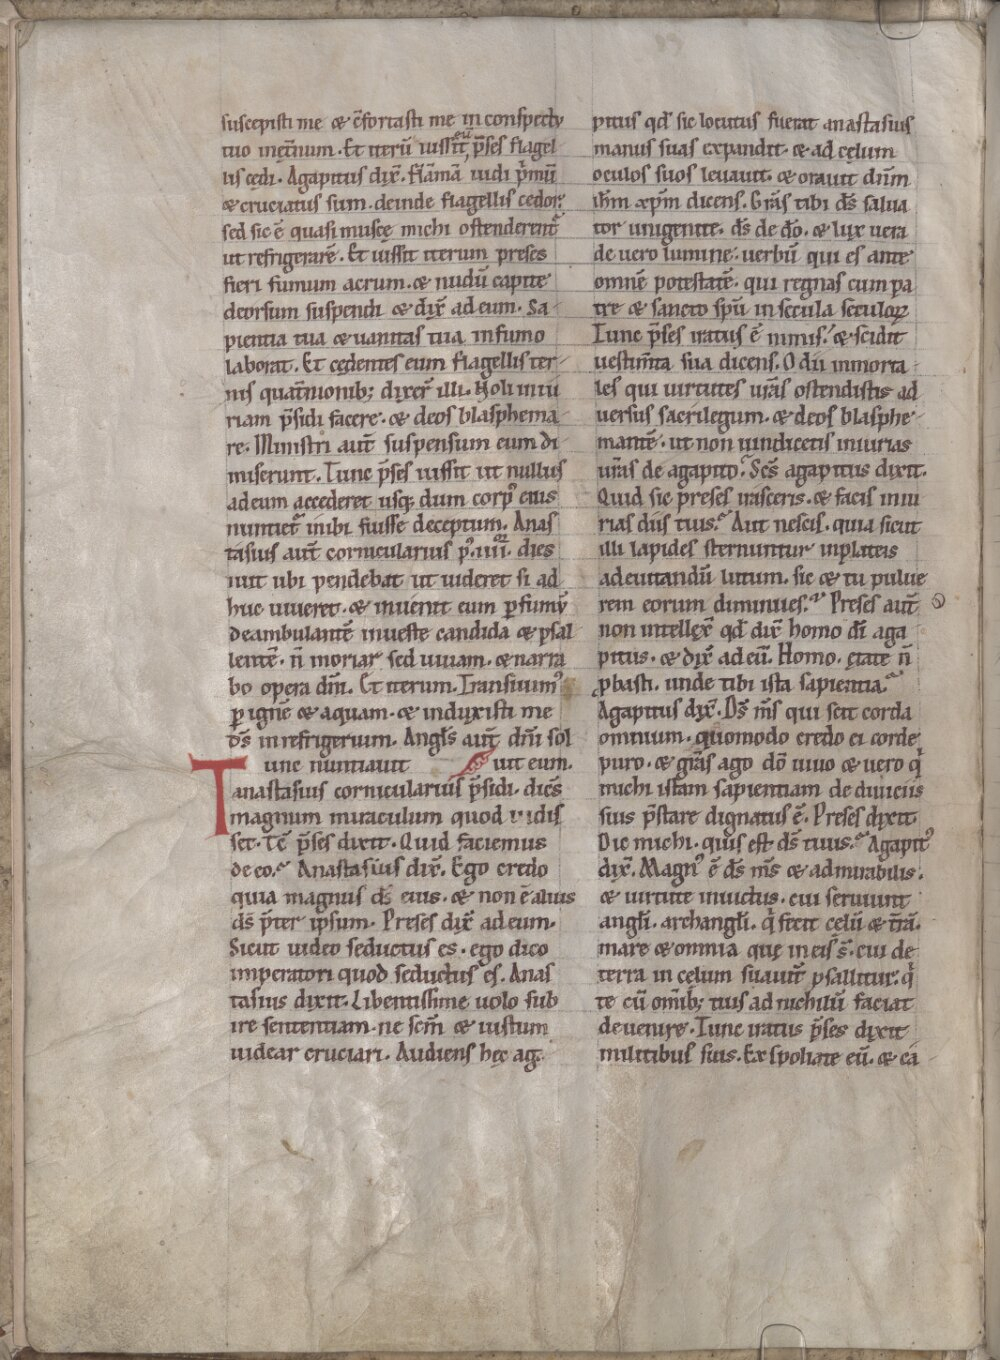 suscepisti me & c̄fortasti me in conspectu
tuo inet̄num. Et iterū iussit eū p̄ses flagel
lis cedi. Agapitus dix̄. Flāmā uidi p̄mū
& cruciatus sum. deinde flagellis cedor.
sed sic ē quasi muscę michi ostenderent̄
ut refrigerarē. Et iussit iterum preses
fieri fumum acrum. & nudū capite
deorsum suspendi & dix̄ ad eum. Sa
pientia tua & uanitas tua in fumo
laborat. Et cedentes eum flagellis ter
nis quat̄nionib; dixer̄ illi. Noli iniu
riam p̄sidi facere. & deos blasphema
re. Ministri aut̄ suspensum eum di
miserunt. Tunc p̄ses iussit ut nullus
ad eum accederet usq; dum corpꝰ eius
nuntiet̄ inibi fuisse deceptum. Anas
tasius aut̄ cornicularius pꝰ .iiii. dies
iuit ubi pendebat ut uideret si ad
huc uiueret. & inuenit eum p̄ fumū
deambulantē in ueste candida & psal
lentē. n̄ moriar sed uiuam. & narra
bo opera dn̄i. Et iterum. Transiuimꝰ
ꝑ ignē & aquam. & induxisti me
d̄s in refrigerium. Angl̄s aut̄ dn̄i sol
uit eum.
Tunc nuntiauit
anastasius cornicularius p̄sidi. dicēs
magnum miraculum quod uidis
set. Tc̄ p̄ses dixit. Quid faciemus
de eo. Anastasius dix̄. Ego credo
quia magnus d̄s eius. & non ē alius
d̄s p̄ter ipsum. Preses dix̄ ad eum.
Sicut uideo seductus es. ego dico
imperatori quod seductus es. Anas
tasius dixit. Libentissime uolo sub
ire sententiam. ne sc̄m & iustum
uidear cruciari. Audiens hęc ag.
pitus qd̄ sic locutus fuerat anastasius
manus suas expandit. & ad cęlum
oculos suos leuauit. & orauit dn̄m
ih̄m xp̄m dicens. Grās tibi d̄s salua
tor unigenite. d̄s de dō. & lux uera
de uero lumine. uerbū qui es ante
omnē potestatē. qui regnas cum pa
tre & sancto spū in secula seculoꝝ
Tunc p̄ses iratus ē nimis. & scidit
uestim̄ta sua dicens. O dii inmorta
les qui uirtutes ur̄as ostendistis ad
uersus sacrilegum. & deos blasphe
mantē. ut non uindicetis iniurias
ur̄as de agapito. Sc̄s agapitus dixit.
Quid sic preses irasceris. & facis iniu
rias diis tuis. Aut nescis. quia sicut
illi lapides sternuntur in plateis
ad euitandū lutum. sic & tu pulue
rem eorum diminues. Preses aut̄
non intellex̄ qd̄ dix̄ homo dī aga
pitus. & dix̄ ad eū. Homo. ętate n̄
ꝓbasti. unde tibi ista sapientia.
Agapitus dix̄. D̄s m̄s qui scit corda
omnium. quomodo credo ei corde
puro. & grās ago dō uiuo & uero q̇
michi istam sapientiam de diuiciis
suis p̄stare dignatus ē. Preses dixit
Dic michi. quis est d̄s tuus. Agapitꝰ
dix̄. Magnꝰ ē d̄s m̄s & admirabilis.
& uirtute inuictus. cui seruiunt
angli. archangli. q̇ fecit celū & t̄rā.
mare & omnia quę in eis s̄. cui de
terra in cęlum suauit̄ psallitur. q̇
te cū om̄ib; tuis ad nichilū faciat
deuenire. Tunc iratus p̄ses dixit
militibus suis. Exspoliate eū. & cā